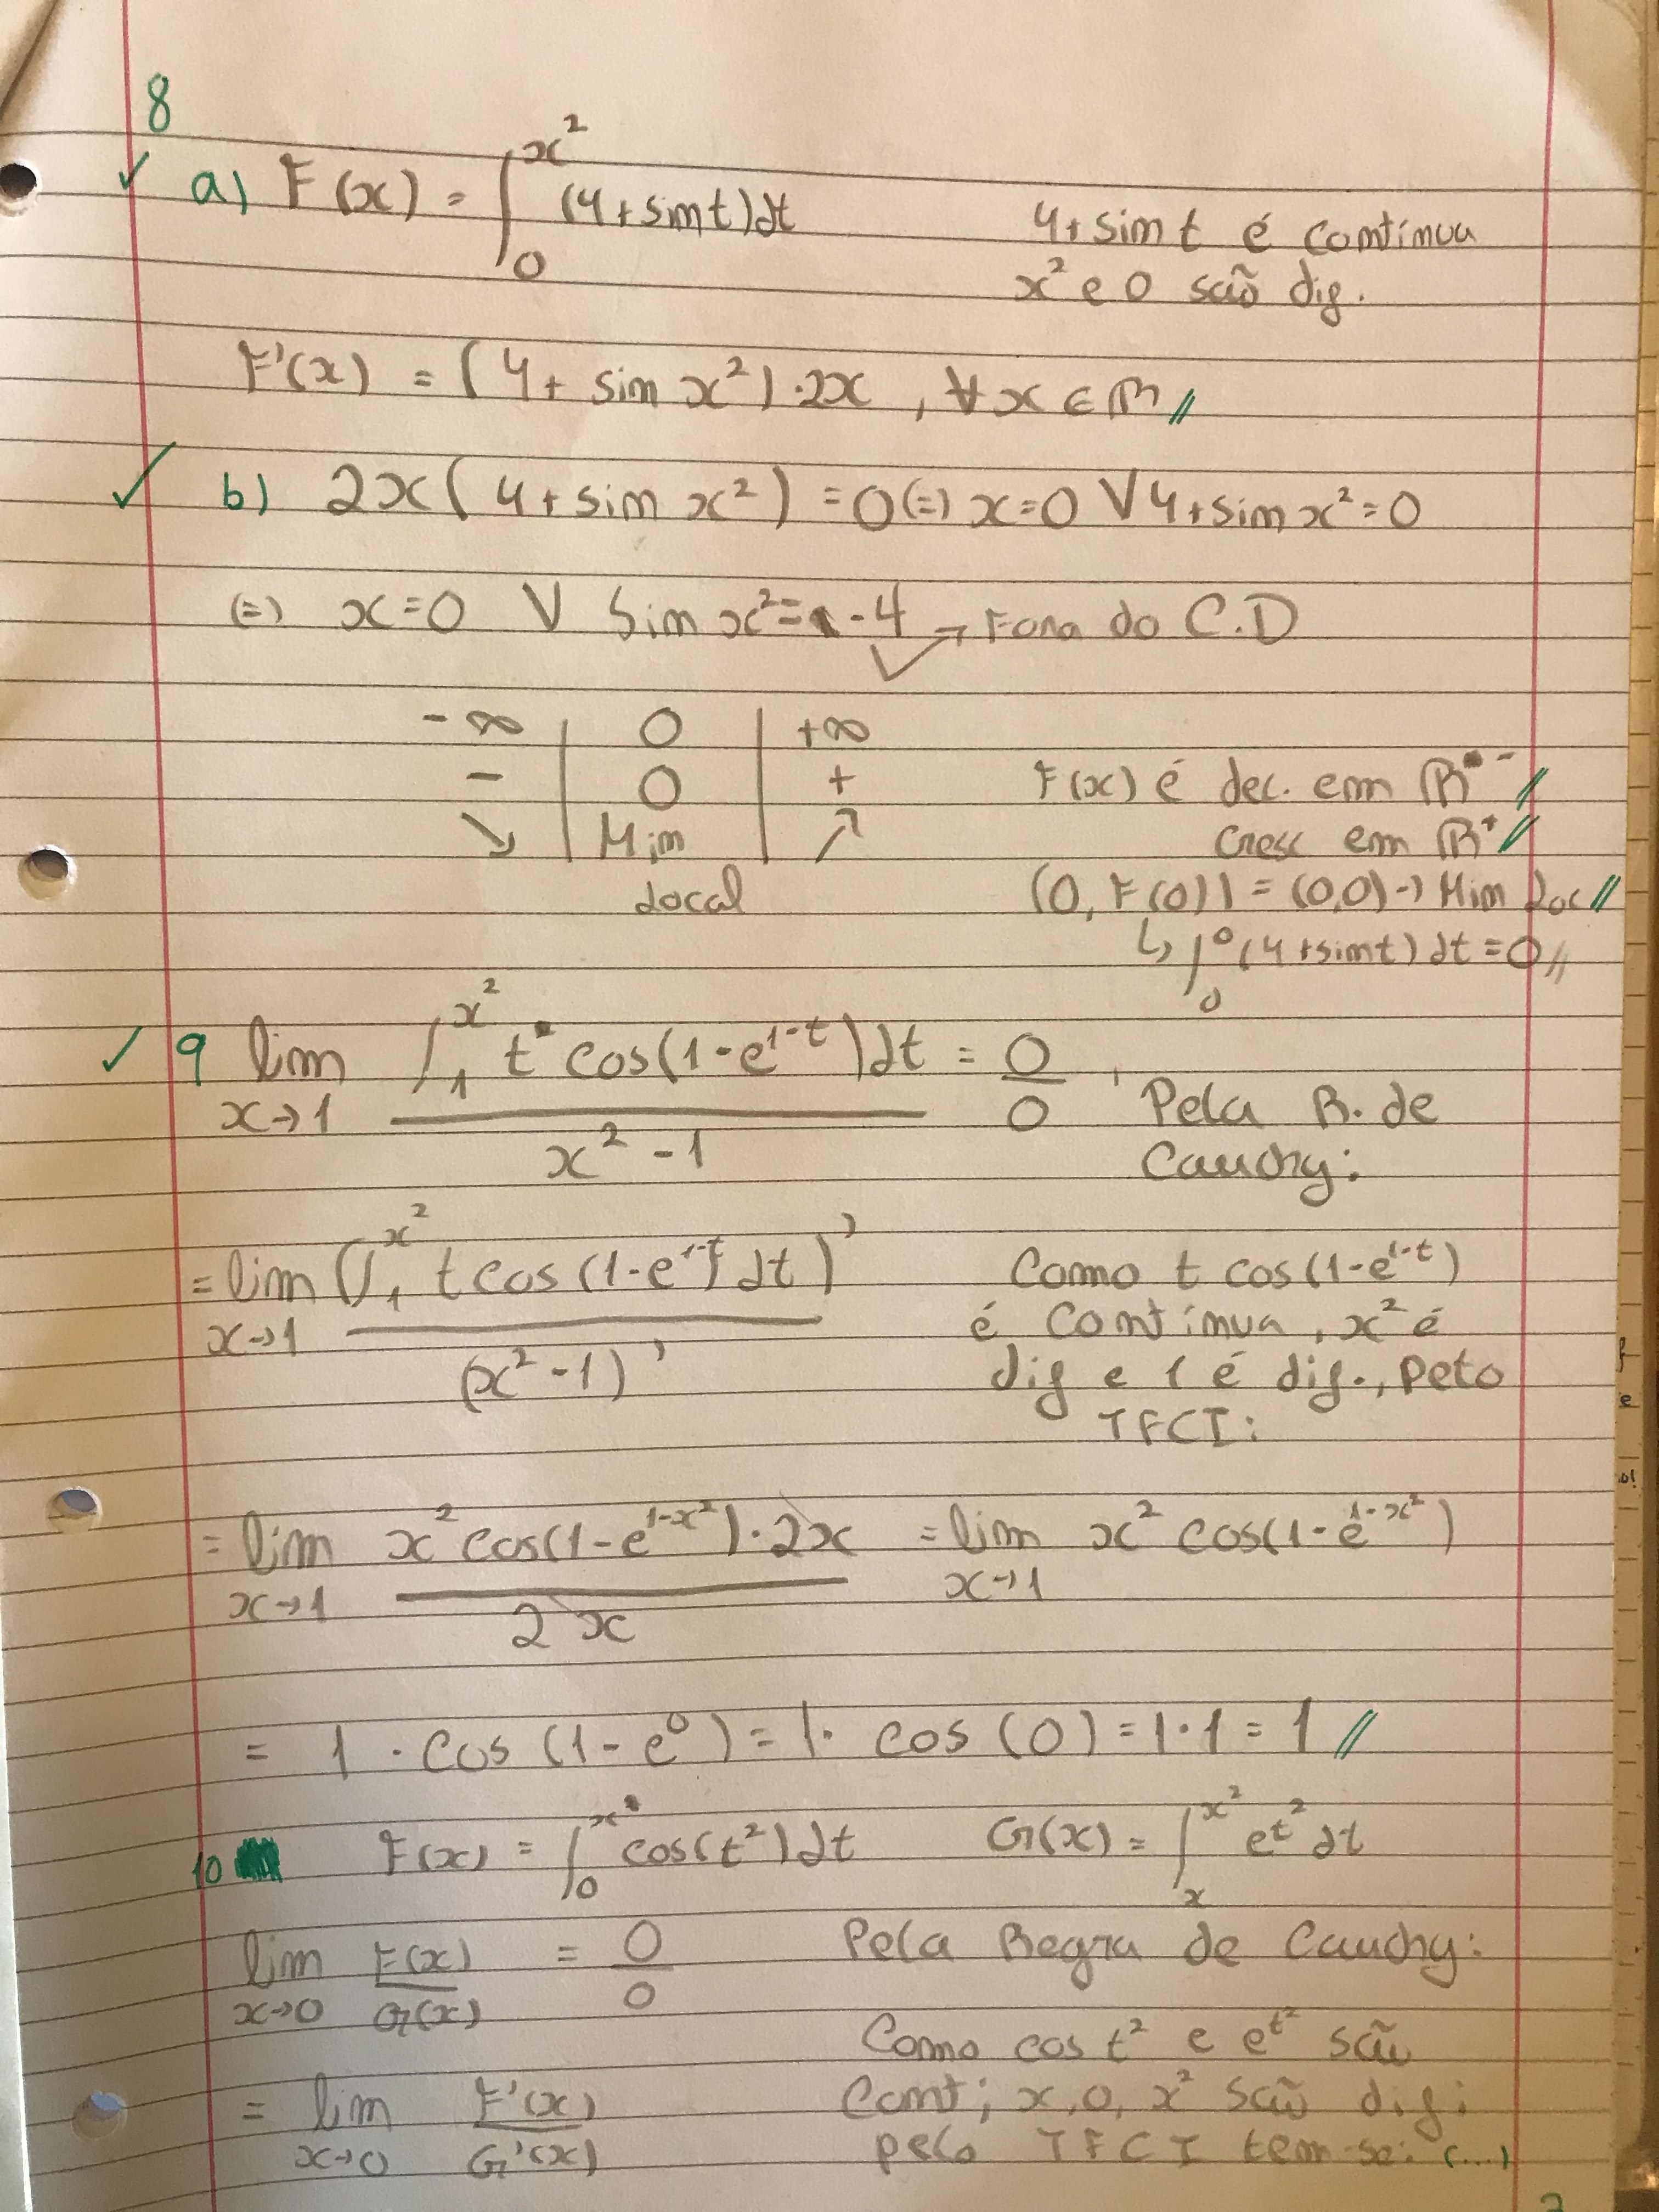 8
✓ a) F(x) = ∫₀^{x²} (4+sin t)dt 4+sin t é contínua
x² e 0 são dif.
F'(x) = (4+ sin x²)·2x , ∀x∈ℝ //
✓ b) 2x(4+sin x²) =0(=) x=0 ∨ 4+sin x²=0
(=) x=0 ∨ Sin x²= -4 → Fora do C.D
-∞ | 0 | +∞
- | 0 | + F(x) é dec. em ℝ⁻ //
↘ | Min | ↗ Cresc em ℝ⁺ //
Local (0, F(0)) = (0,0) → Min Loc //
↳ ∫₀⁰ (4+sin t) dt = 0 //
✓ 9 lim x→1 ∫₁^{x²} t cos(1-e^{1-t})dt / x²-1 = 0/0 , Pela R. de
Cauchy:
= lim x→1 (∫₁^{x²} t cos(1-e^{1-t}) dt)' / (x²-1)' Como t cos(1-e^{1-t})
é contínua, x² é
dif e 1 é dif., pelo
TFCI:
= lim x→1 x² cos(1-e^{1-x²})·2x / 2x = lim x→1 x² cos(1-e^{1-x²})
= 1 · cos (1-e⁰) = 1· cos (0) = 1·1 = 1 //
10 F(x) = ∫₀^{x} cos(t²)dt G(x) = ∫ₓ^{x²} e^{t²} dt
lim x→0 F(x)/G(x) = 0/0 Pela Regra de Cauchy:
Como cos t² e e^{t²} são
= lim x→0 F'(x)/G'(x) Cont; x, 0, x² são dif;
pelo TFCI tem-se: (...)